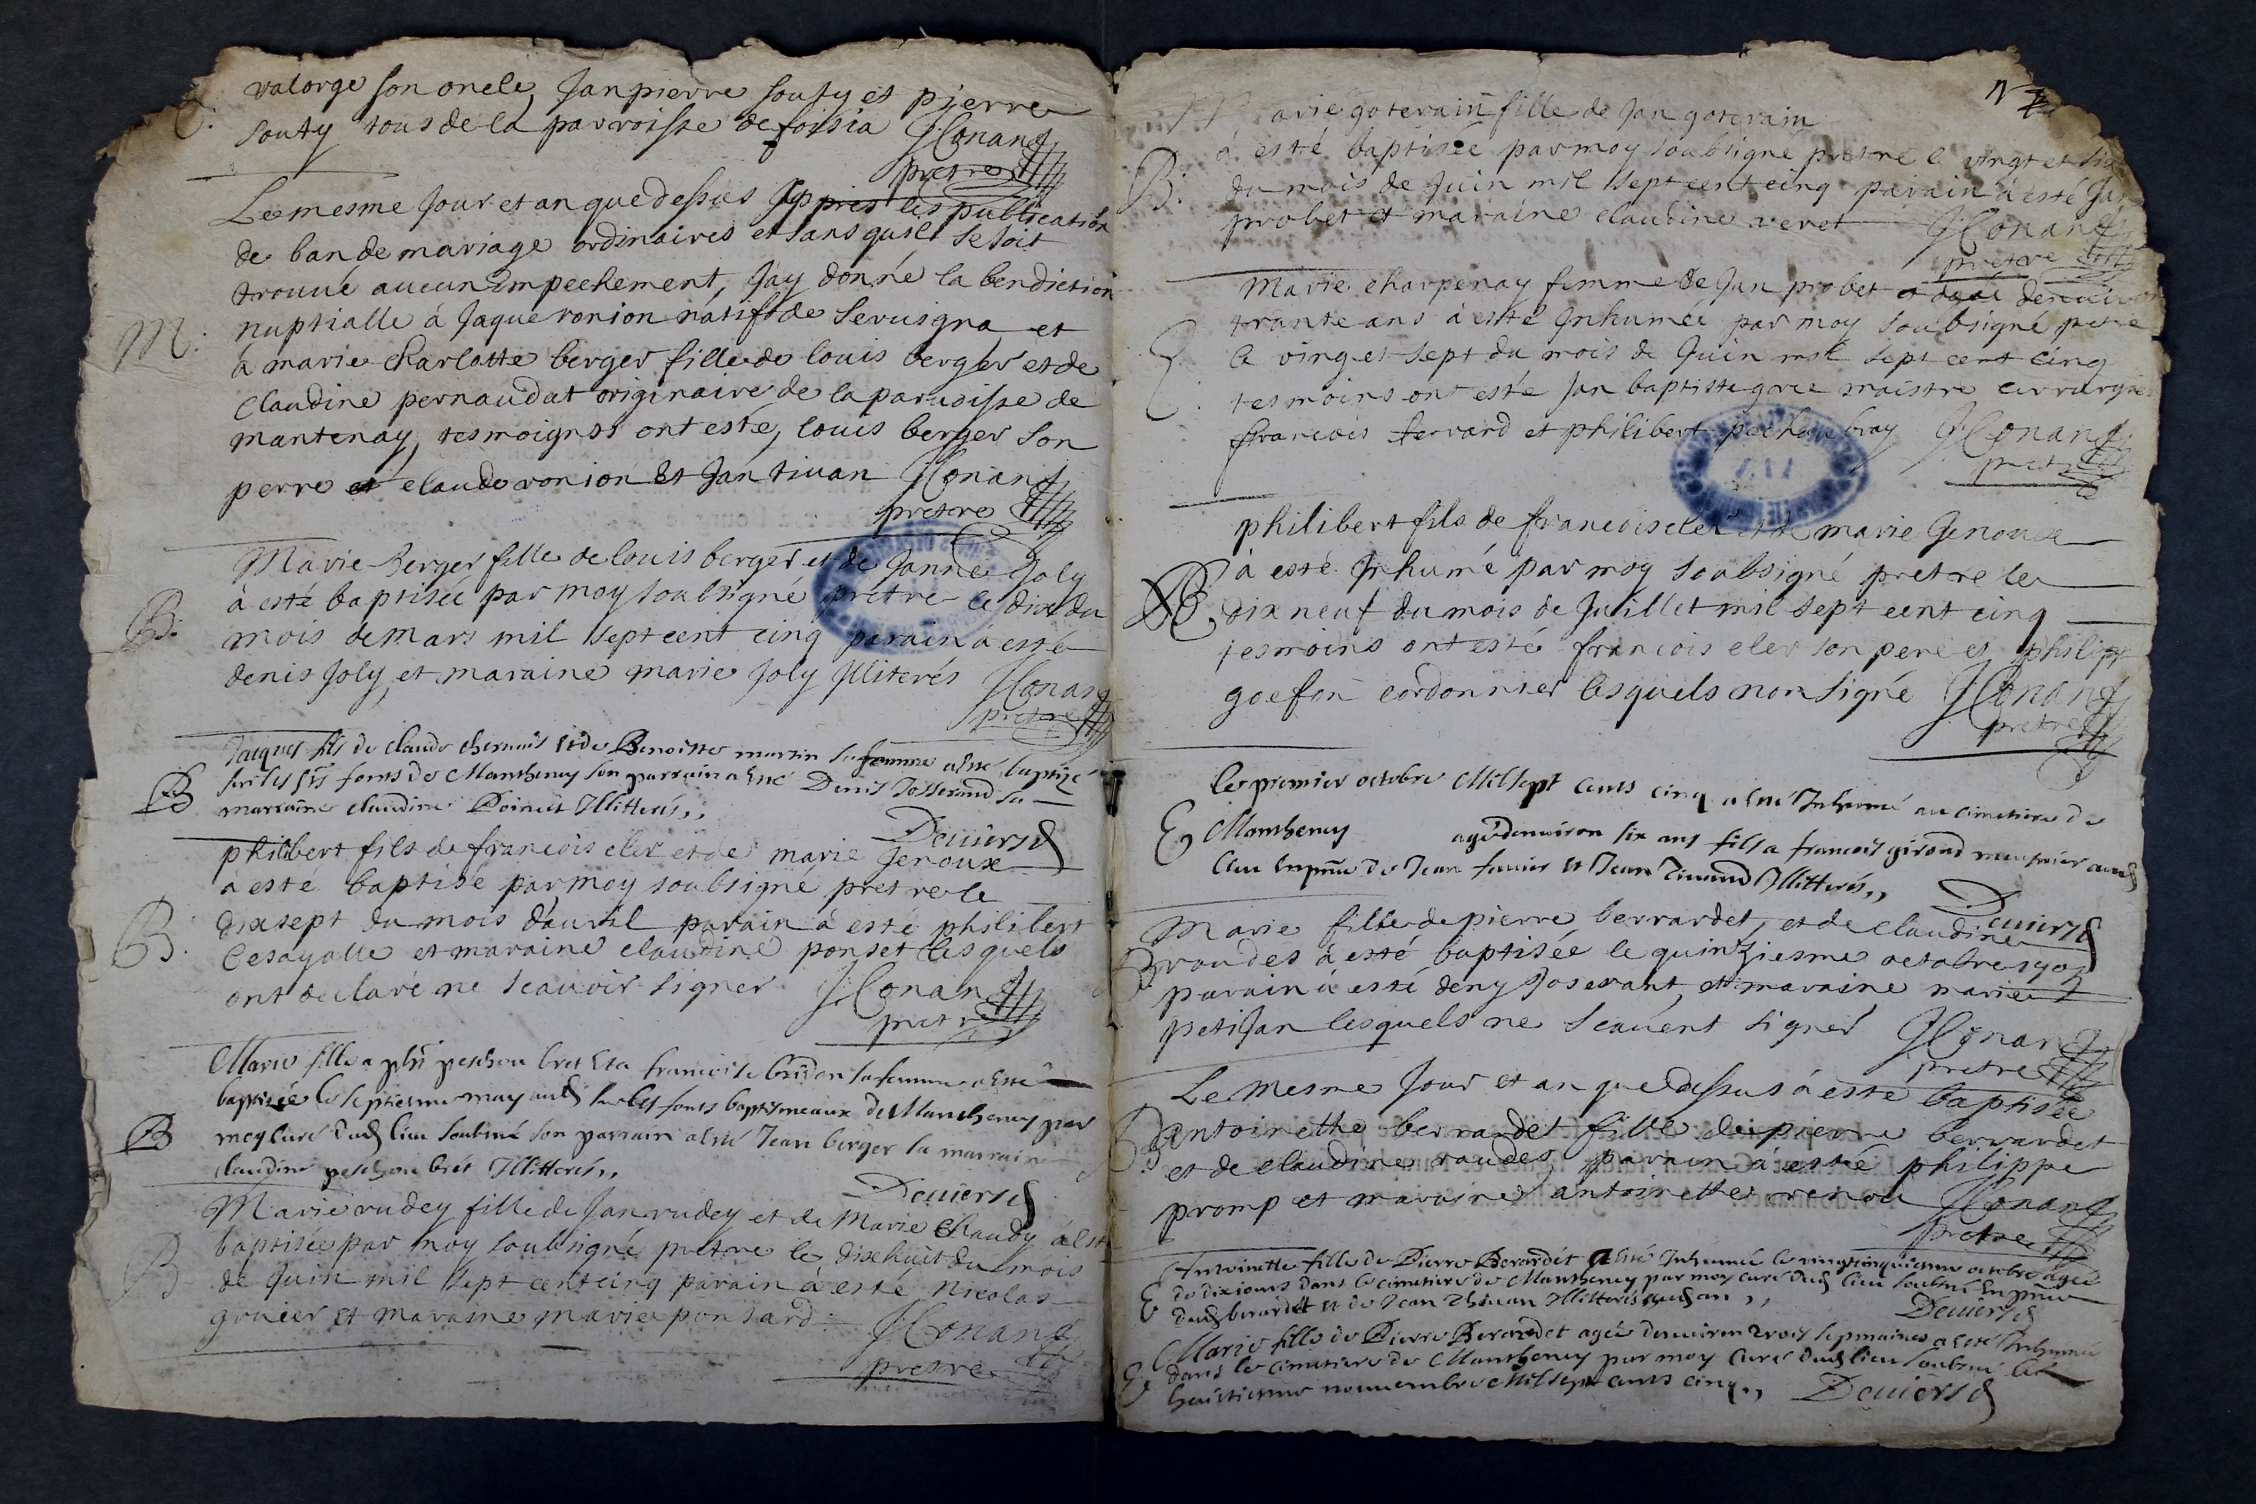 valorge son oncle, Jan pierre souty et pierre
souty tous de la parroisse de foissia JConand
pretre
Le mesme Jour et an que dessus Appres les publication
de ban de mariage ordinaires et sans quil se soit
trouué aucun Empechement, Jay donné la bendiction
M. nuptialle à Jaque ronion natifs de seruigna et
a marie charlotte berger fille de louis berger et de
Claudine pernaudat originaire de la paroisse de
mantenay, tesmoignss ont esté, louis berger son
perre et claude ronion Et Jan tiuan JConand
pretre
Marie Berger fille de louis berger et de Janne Joly
à esté baptisée par moy soubsigné pretre le dix du
B. mois de mars mil sept cent cinq parain à esté
denis Joly, et maraine marie Joly Jlliterés JConand
pretre
Jacques fils de claude chernais et de Benoitte martin sa femme a esté baptizé
B sur les fonts de Manthenay son parrain a esté Denis Josserand sa
marraine claudine Illitterés,,
Deuiers
philibert fils de francois cler et de marie Jenoux
à esté baptisé par moy soubsigné pretre le
dix sept du mois dauril parain à esté philibert
B. Cesagalle et maraine claudine ponset lesquels
ont declaré ne scauoir signer JConand
pretre
Marie fille a phi peschou bret et a francoise bridon sa femme a esté
baptizée le septiesme may aud sur les fonts baptismeaux de Manthenay par
B moy curé dud lieu soubné son parrain a esté Jean berger sa marraine
claudine peschou bret Illitterés,,
Deuiers
Marie rudey fille de Jan rudey et de Marie Chaudy à esté
baptisée par moy soubsigné pretre le dixhuit du mois
B de Juin mil sept cent cinq parain à esté Nicolas
gruier et maraine marie ponsard JConand
pretre
Marie goterain fille de Jan goterain
à esté baptisée par moy soubsigné pretre le vingt et six
B. du mois de Juin mil sept cent cinq parain à esté Jan
probet et maraine claudine veret JConand
pretre
Marie charpenay femme de Jan probet denuiron
trante ans à esté Inhumée par moy soubsigné pretre
E. le ving et sept du mois de Juin mil sept cent cinq
tesmoins ont esté Jan baptiste maistre cirrurgien
francois ferrard et philibert pechou bray JConand
pretre
philibert fils de francois cler et de marie Jenoux
à esté Inhumé par moy soubsigné pretre le
E dix neuf du mois de Juillet mil sept cent cinq
tesmoins ont esté francois cler son pere et philipp
goefon cordonnier lesquels non signé JConand
pretre
le premier octobre Mil sept cents cinq a esté Inhumé au cimetiere de
E Manthenay agé denuiron six ans fils a francois girond meusnier aud
lieu en pñce de Jean fauier et Jean Tiuand Illitterés,,
Deuiers
Marie fille de pierre berrardet, et de claudine
B raudes à esté baptisée le quinziesme octobre 1705
parain à esté deny Joserant, et maraine marie
petiJan lesquels ne scauent signer JConand
pretre
Le mesme Jour et an que dessus à esté baptisée
B antoinette bernardet fille de pierre berrardet
et de claudine raudes, parain à esté philippe
promp et maraine antoinette renou JConand
pretre
Antoinette fille de Pierre Berardet a esté Inhumée le vingtcinquiesme octobre agée
E de dix jours dans le cimetiere de Manthenay par moy curé dud lieu soubné en pñce
dud berardet et de Jean Thiuan Illitterés aud an,,
Deuiers
Marie fille de Pierre Berardet agée denuiron trois sepmaines a esté Inhumée
E dans le cimetiere de Manthenay par moy curé dud lieu soubné le
huictiesme nouuembre Mil sept cents cinq,, Deuiers